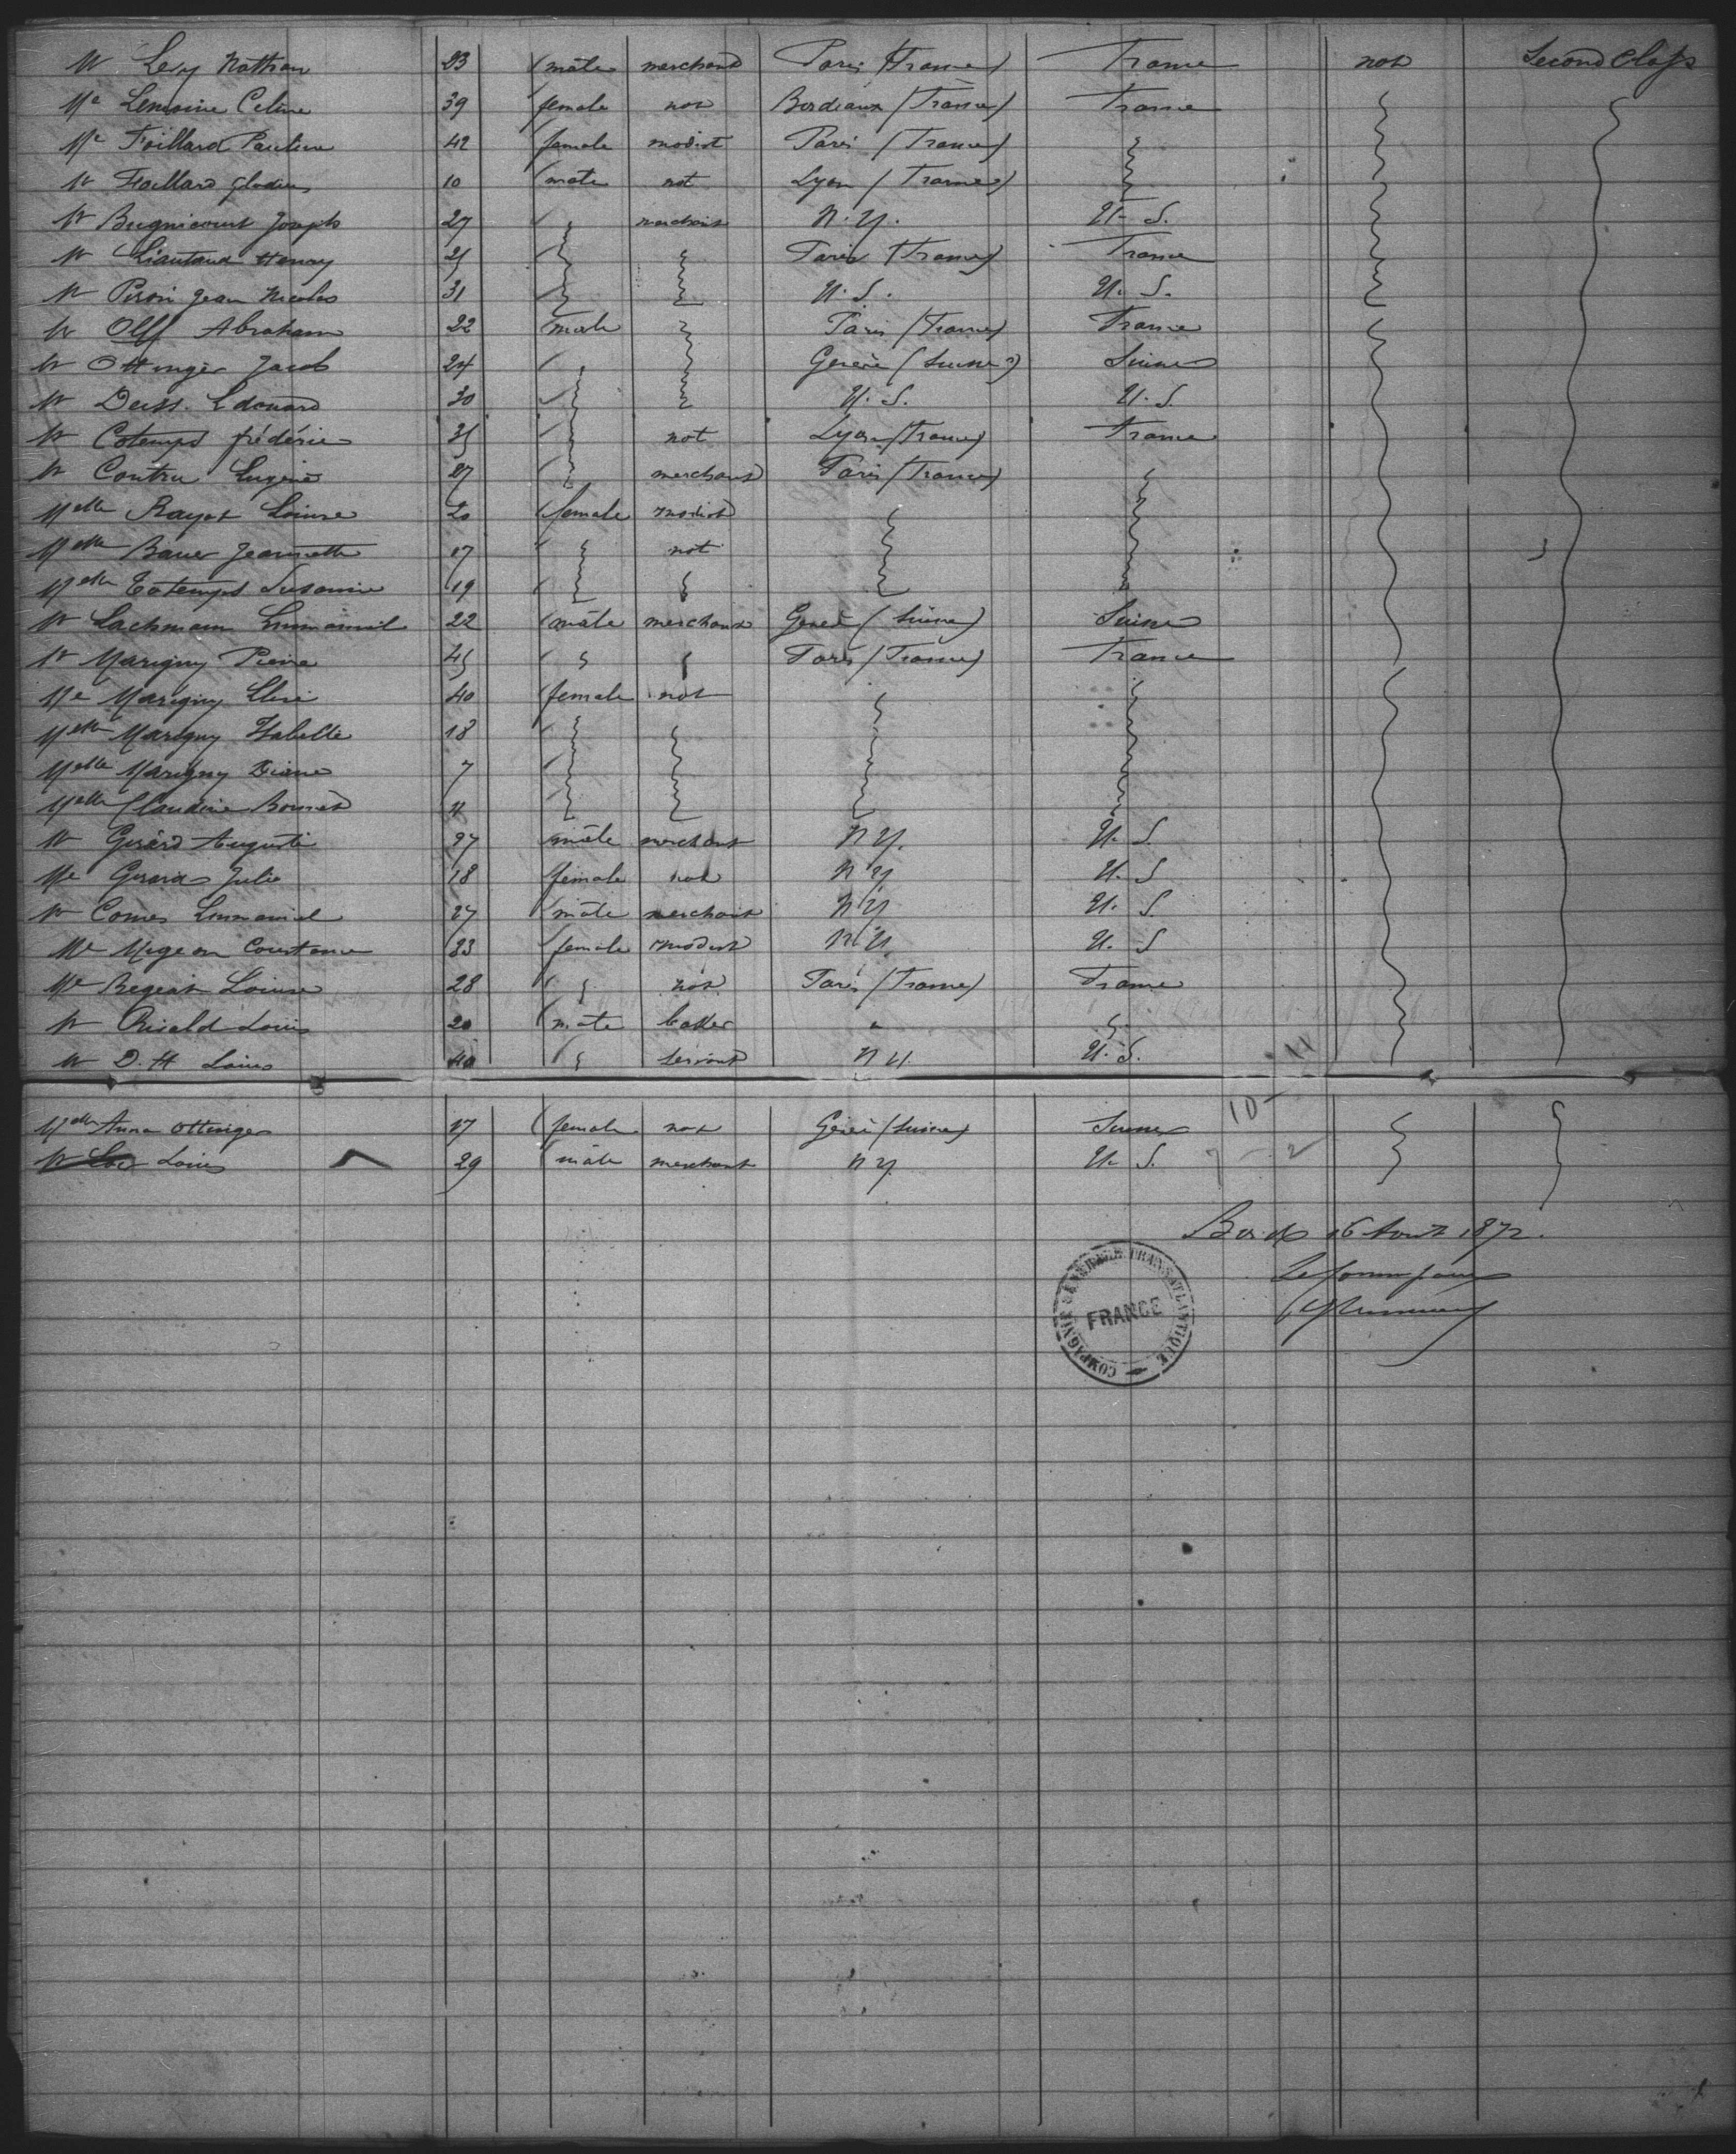 Mr Levy Nathan 23 male merchand Paris (France) France not Second Class
Me Lemoine Celine 39 female not Bordeaux (France) France
Me Foillard Pauline 42 female modist Paris (France)
Mr Foillard 10 male not Lyon (France)
Mr Bugnicourt Joseph 27 merchant N. Y. U. S.
Mr Liautaud Henry Paris (France) France
Mr Jean Nicolas 31 U. S. U. S.
Mr Olff Abraham 22 male Paris (France) France
Mr Ottinger Jacob 24 Suisse
Mr Deiss Edouard 30 U. S. U. S.
Mr Cotemps frédéric not Lyon (France) France
Mr Contru Eugène 27 merchant Paris (France)
Melle Rayot Louise 20 female modist
Melle Bauer Jeannette 17 not
Melle Cotemps Susanne 19
Mr Lachmann Emmanuel 22 mâle merchant (Suisse) Suisse
Mr Marigny Pierre 45 Paris (France) France
Me Marigny 40 female not
Melle Marigny Isabelle 18
Melle Marigny Diane 7
Melle Claudine Bonnet 11
Mr Gérard Auguste 27 mâle merchant N Y. U. S.
Me Gerard Julie 18 female not N Y U. S
Mr Comes Emmanuel 27 mâle merchant N Y U. S.
Me Migeon Constance 23 female modist N Y U. S
Me Regeat Louise 28 not Paris (France) France
Mr Louis 20 male
Mr D. H Louis 40 servant N Y. U. S.
11
10 -
Melle Anna Ottinger 17 female not (Suisse) Suisse
Mr Louis 29 mâle merchant N Y. U. S. 7 - 2
16 Aout 1872.
COMPAGNIE GENERALE TRANSATLANTIQUE
FRANCE